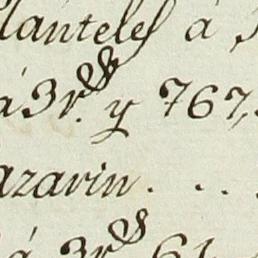 lanteles á
á 3 r.s y 767,
azarin. . .
á 3 rs 61